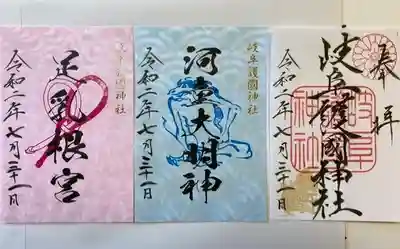 奉拝
岐阜護國神社
令和二年七月三十一日
岐阜護國神社
河童大明神
令和二年七月三十一日
岐阜護國神社
足乳根宮
令和二年七月三十一日